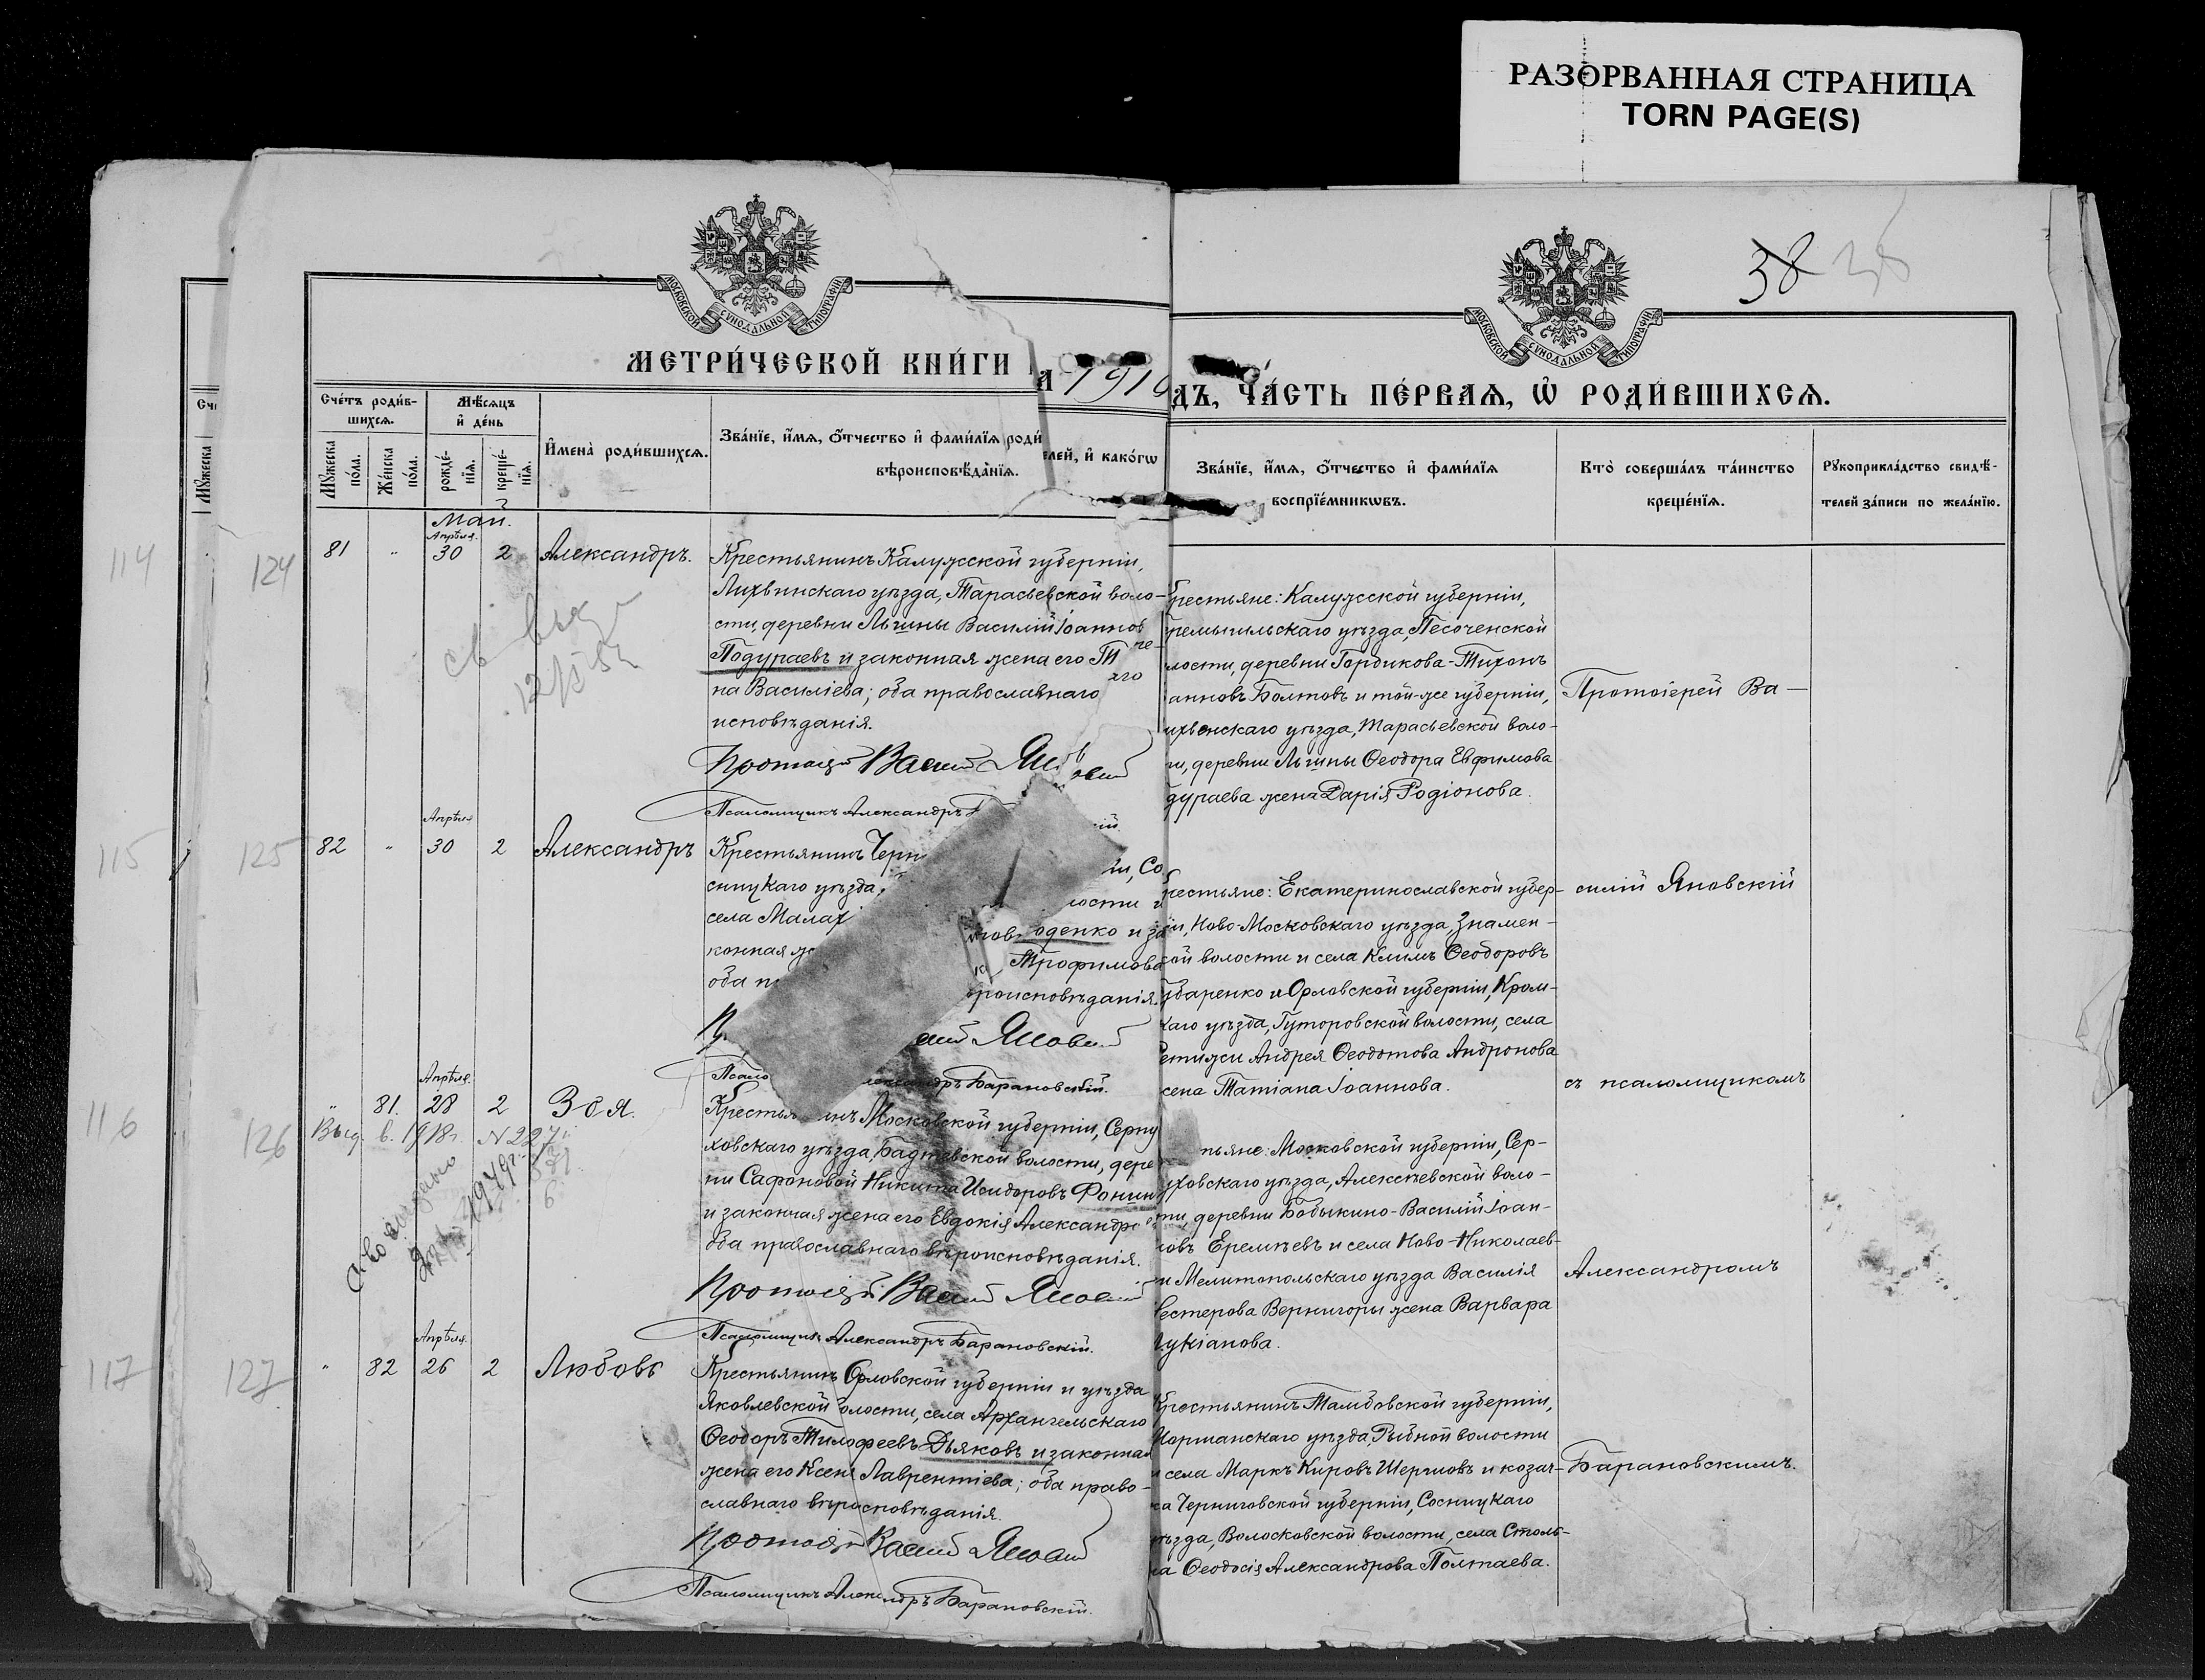 РАЗОРВАННАЯ СТРАНИЦА
TORN PAGE(S)
38
МОСКОВСКОЙ СѴНОДАЛЬНОЙ ТИПОГРАФІИ
МОСКОВСКОЙ СѴНОДАЛЬНОЙ ТИПОГРАФІИ
МЕТРИ́ЧЕСКОЙ КНИ́ГИ
1916
ДЪ, ЧА́СТЬ ПЕ́РВАѦ, Ѡ РОДИ́ВШИХСѦ.
Сче́тъ роди́в-
шихсѧ.
Мꙋжеска по́ла.
Же́нска по́ла.
Мѣ́сѧцъ
и҆ де́нь
рожде́-
нїѧ.
креще́-
нїѧ.
И҆мена̀ роди́вшихсѧ.
Зва́нїе, и҆́мѧ, ѻ҆́тчество и҆ фами́лїѧ роди́
елей, и҆ како́гѡ
вѣроисповѣ́данїѧ.
Зва́нїе, и҆́мѧ, ѻ҆́тчество и҆ фами́лїѧ
воспрїе́мникѡвъ.
Кто̀ соверша́лъ та́инство
креще́нїѧ.
Рꙋкоприкла́дство свидѣ́-
телей за́писи по жела́нїю.
Май.
Апрѣля.
114
124
81 " 30 2 Александръ.
Крестьянинъ Калужской губерніи,
Лихвинскаго уѣзда, Тарасьевской воло-
сти, деревни Льгины Василій Іоаннов
Подураевъ и законная жена его
на Василіева; оба православнаго
исповѣданія.
Протоіерей Василій Яновскій
Псаломщикъ Александръ
Крестьяне: Калужской губерніи,
Перемышльскаго уѣзда, Песоченской
лости, деревни Гордикова - Тихонъ
анновъ Болтовъ и той-же губерніи,
ихвенскаго уѣзда, Тарасьевской воло-
ти, деревни Льгины Ѳеодора Евфимова
дураева жена Дарія Родіонова.
Протоіерей Ва-
Апрѣля
115
125
82 " 30 2 Александръ
Крестьянинъ Черн
іи, Со
сницкаго уѣзда,
лости и
села Мала
оденко и за
конная
Трофимова
оба п
вѣроисповѣданія.
Яновскій
Псало лександръ Барановскій.
Крестьяне: Екатеринославской губер-
іи, Ново-Московскаго уѣзда, Знамен-
кой волости и села Климъ Ѳеодоровъ
убаренко и Орловской губерніи, Кром-
каго уѣзда, Гуторовской волости, села
Андрея Ѳеодотова Андронова
жена Татіана Іоаннова.
силій Яновскій
съ псаломщикомъ
Апрѣля.
116
126
" 81. 28 2 Зоя.
Выд. в. 1918г. N 227
1949г.
Крестьянинъ Московской губерніи, Серпу
ховскаго уѣзда, волости, дере
ни Сафоновой Никита Исидоровъ Фонин
и законная жена его Евдокія Александро
оба православнаго вѣроисповѣданія.
Протоіерей Василій Яновскій
Псаломщикъ Александръ Барановскій.
тьяне: Московской губерніи, Сер-
уховскаго уѣзда, Алексѣевской воло-
ти, деревни Бобыкино - Василій Іоан-
новъ Еремѣевъ и села Ново-Николаев-
и Мелитопольскаго уѣзда Василія
Нестерова Вернигоры жена Варвара
Лукіанова.
Александромъ
Апрѣля.
117
127
" 82 26 2 Любовь
Крестьянинъ Орловской губерніи и уѣзда
Яковлевской волости, села Архангельскаго
Ѳеодоръ Тимофеевъ Дьяковъ и законная
жена его Ксенія Лаврентіева; оба право-
славнаго вѣроисповѣданія.
Протоіерей Василій Яновскій
Псаломщикъ Александръ Барановскій.
Крестьянинъ Тамбовской губерніи,
Моршанскаго уѣзда, Рыбной волости
и села Маркъ Кировъ и козач-
ка Черниговской губерніи, Сосницкаго
уѣзда, Волосковской волости, села Столь-
на Ѳеодосія Александрова Полтаева.
Барановскимъ.